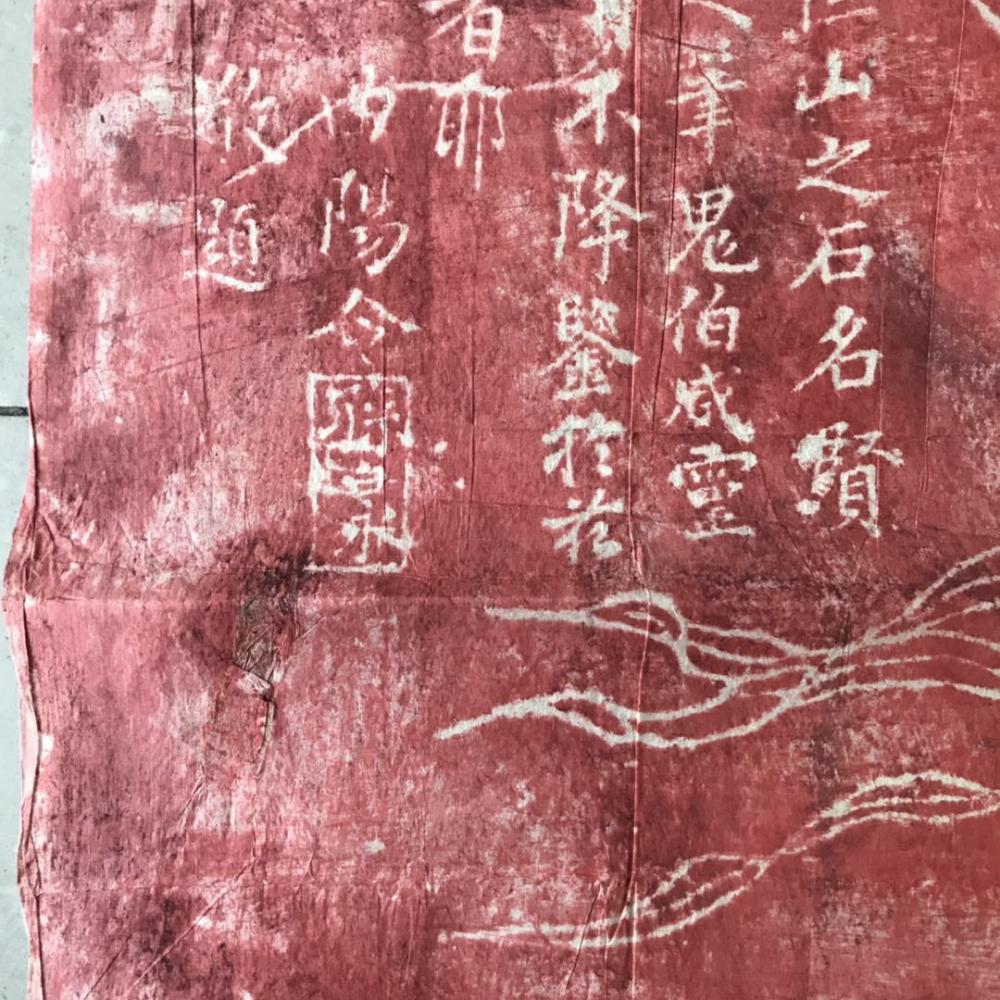 山之石名賢
筆鬼伯咸靈
不降鑒於茲
者耶
陽令
題